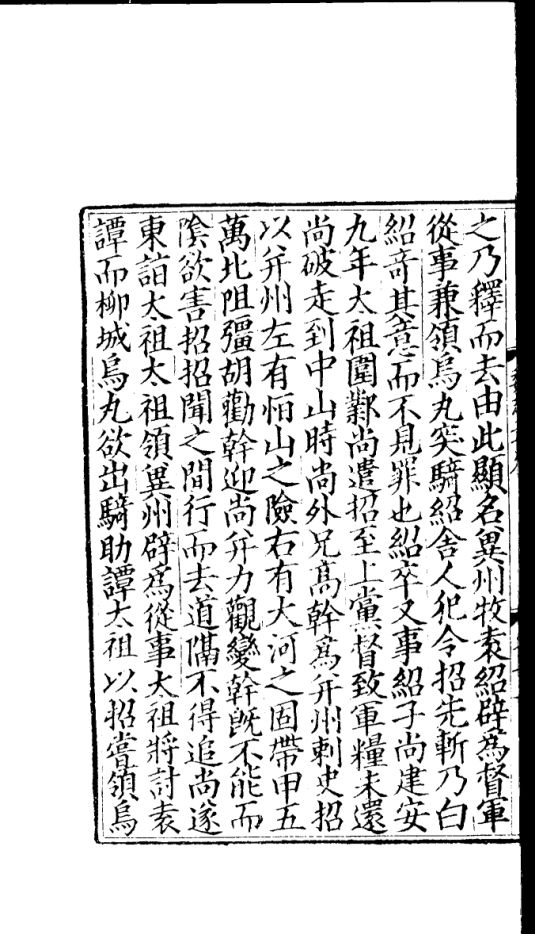 之乃釋而去由此顯名兾州牧袁紹辟爲督軍
從事兼領烏丸突騎紹舍人犯令招先斬乃白
紹竒其意而不見罪也紹卒又事紹子尚建安
九年太祖圍鄴尚遣招至上黨督致軍糧未還
尚破走到中山時尚外兄髙幹爲并州刺史招
以并州左有恒山之險右有大河之固帶甲五
萬北阻彊胡勸幹迎尚并力觀變幹旣不能而
隂欲害招招聞之間行而去道隔不得追尚遂
東詣太祖太祖領兾州辟爲從事太祖將討袁
譚而柳城烏丸欲出騎助譚太祖以招嘗領烏